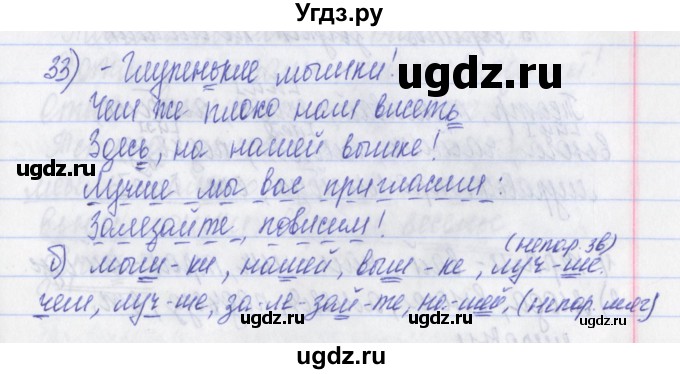 Угдз.ру
33) - Глупенькие мышки!
ugdz.ru
Чем же плохо нам висеть
Здесь, на нашей вышке!
ugdz.ru ugdz.ru
Лучше мы вас пригласим:
Залезайте, повисим!
ugdz.ru
(непар. зв)
б) мыш-ки, нашей, выш-ке, луч-ше.
чем, луч-ше, за-ле-зай-те, на-шей, (непар. мяг)
ugdz.ru ugdz.ru
ugdz.ru